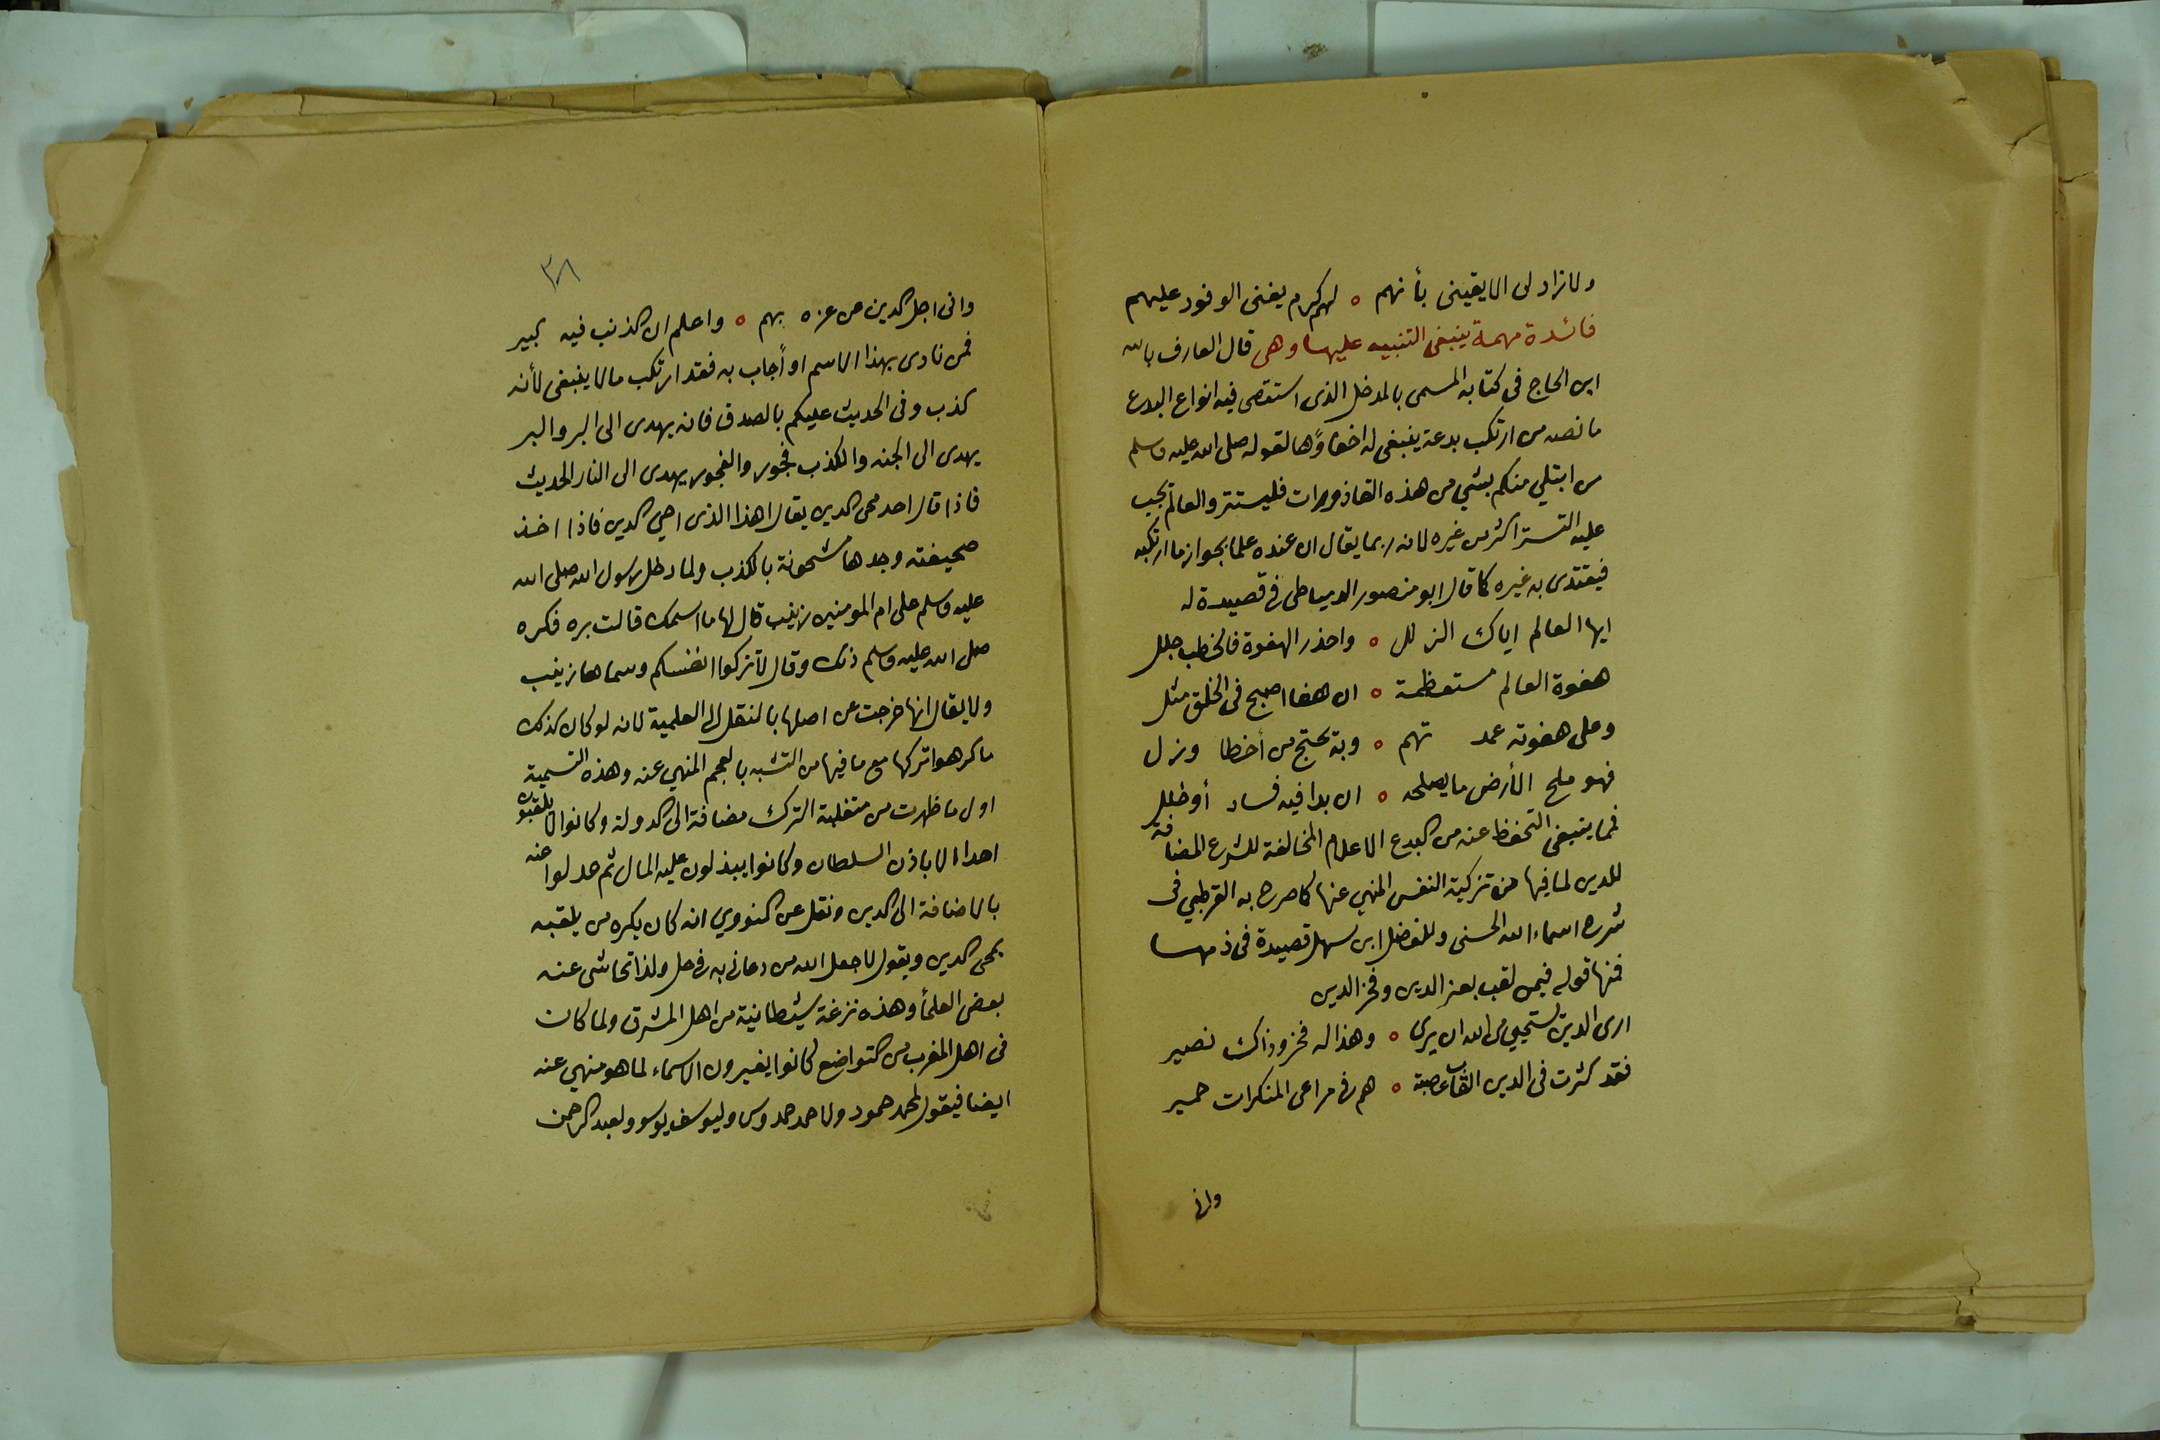 ولا زاد لى الا يقينى بأنهم ٥ لهم كرم يغنى الوفود عليهم
فائدة مهمة ينبغى التنبيه عليها وهى قال العارف بالله
ابن الحاج فى كتابه المسمى بالمدخل الذى استقصى فيه انواع البدع
ما نصه من ارتكب بدعة ينبغى له اخفاؤها لقوله صلى الله عليه وسلم
من ابتلي منكم بشي من هذه القاذورات فليستتر والعالم يجب
عليه التستر اكثر من غيره لانه ربما يقال ان عنده علما بجواز ما ارتكبه
فيقتدى به غيره كما قال ابو منصور الدمياطى فى قصيدة له
ايها العالم اياك الزلل ٥ واحذر الهفوة فالخطب جلل
هفوة العالم مستعظمة ٥ ان هفا اصبح فى الخلق مثل
وعلى هفوته عمد تهم ٥ وبه يحتج من أخطا وزل
فهو ملح الأرض ما يصلحه ٥ ان بدا فيه فساد أو خلل
فمما ينبغى التحفظ عنه من البدع الاعلام المخالفة للشرع المضافة
للدين لما فيها من تزكية النفس المنهي عنها كما صرح به القرطبي فى
شرح اسماء الله الحسنى وللفضل ابن سهل قصيدة فى ذمها
فمنها قوله فيمن لقب بعز الدين وفخر الدين
ارى الدين يستحيي من الله ان يرى ٥ وهذا له فخر وذاك نصير
فقد كثرت فى الدين القاب عصبة ٥ هم فى مراعى المنكرات حمير
وانى
٣٨
وانى اجل الدين عن عزه بهم ٥ واعلم ان الذنب فيه كبير
فمن نادى بهذا الاسم او أجاب به فقد ارتكب ما لا ينبغى لأنه
كذب وفى الحديث عليكم بالصدق فانه يهدى الى البر والبر
يهدى الى الجنه والكذب فجور والفجور يهدى الى النار الحديث
فاذا قال احد محى الدين يقال اهذا الذى احي الدين فاذا اخذ
صحيفته وجدها مشحونة بالكذب ولما دخل رسول الله صلى الله
عليه وسلم على ام المومنين زينب قال لها ما اسمك قالت بره فكره
صلى الله عليه وسلم ذلك وقال لا تزكوا انفسكم وسماها زينب
ولا يقال انها خرجت عن اصلها بالنقل الى العلمية لانه لو كان كذلك
ما كرهوا تركها مع ما فيها من التشبه بالعجم المنهي عنه وهذه التسمية
اول ما ظهرت من متغلبة الترك مضافة الى الدولة وكانوا لا يلقبون
احدا الا باذن السلطان وكانوا يبذلون عليه المال ثم عدلوا عنه
بالاضافة الى الدين ونقل عن النووي انه كان يكره من يلقبه
بمحى الدين ويقول لا جعل الله من دعانى به فى حل ولذا تحاشى عنه
بعض العلمأ وهذه نزغة شيطانية من اهل المشرق ولما كان
فى اهل المغرب من التواضع كانوا يغيرون الاسماء لما هو منهي عنه
ايضا فيقول لمحمد حمود ولاحمد حمدوس وليوسف يوسو ولعبد الرحمن